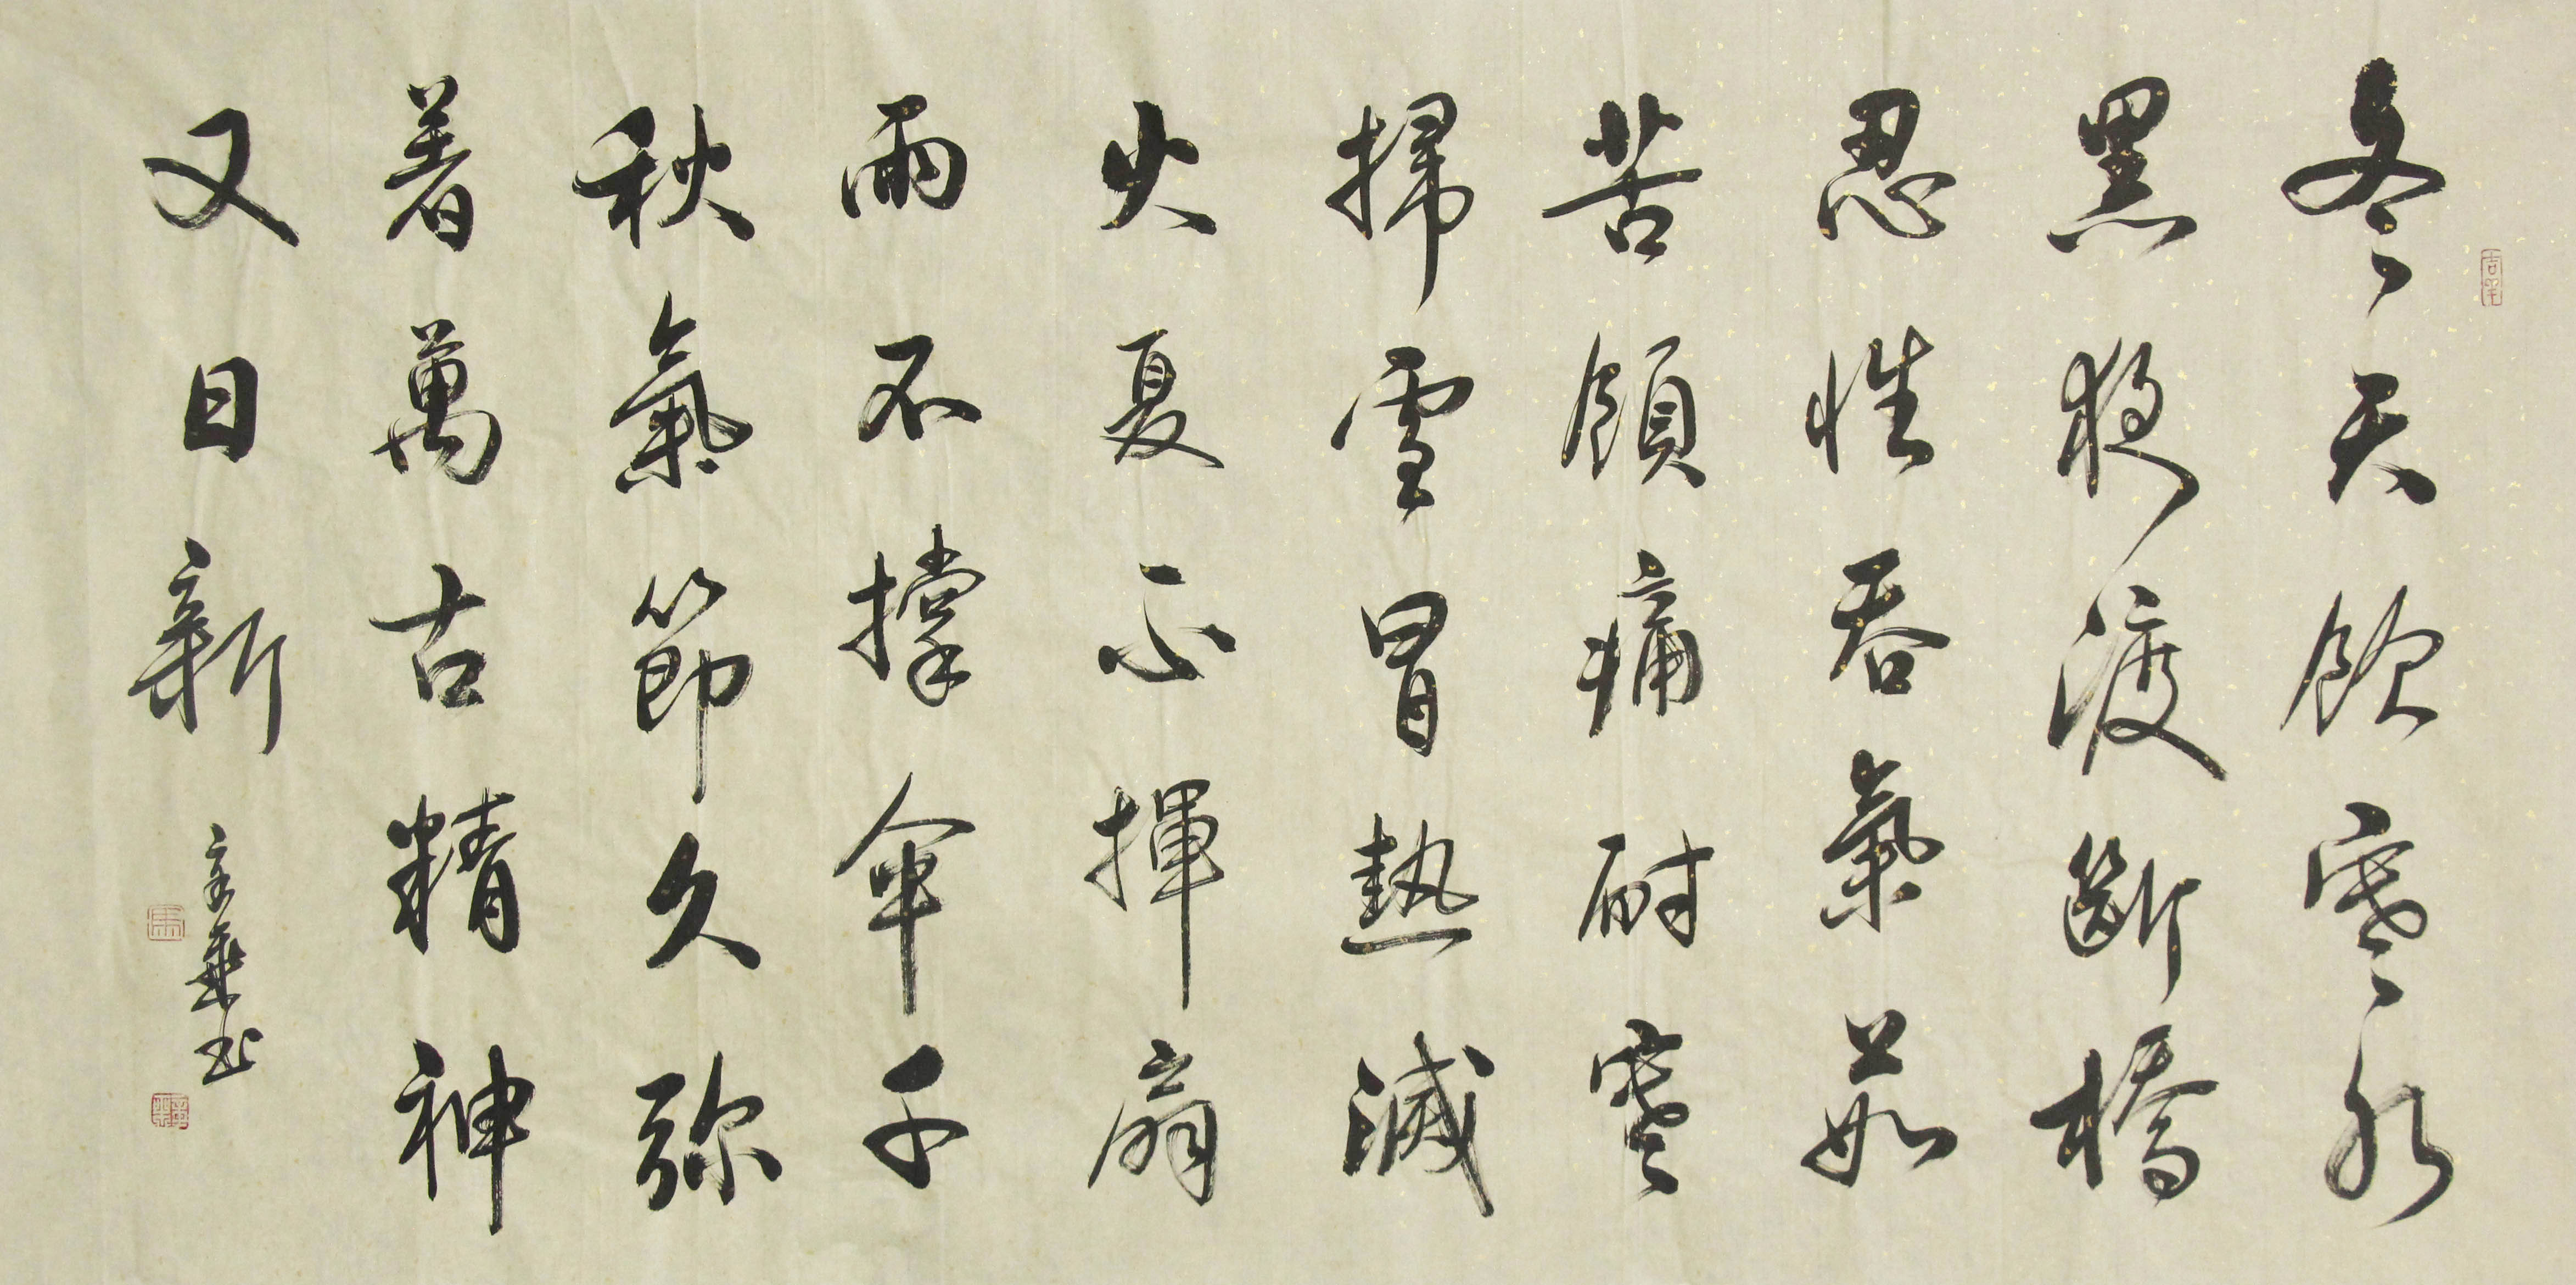 冬天飲寒水
黑夜渡斷橋
忍性吞氣茹
苦領痛耐寒
掃雪冒熱滅
火夏不揮扇
雨不撐傘千
秋氣節久彌
著萬古精神
又日新